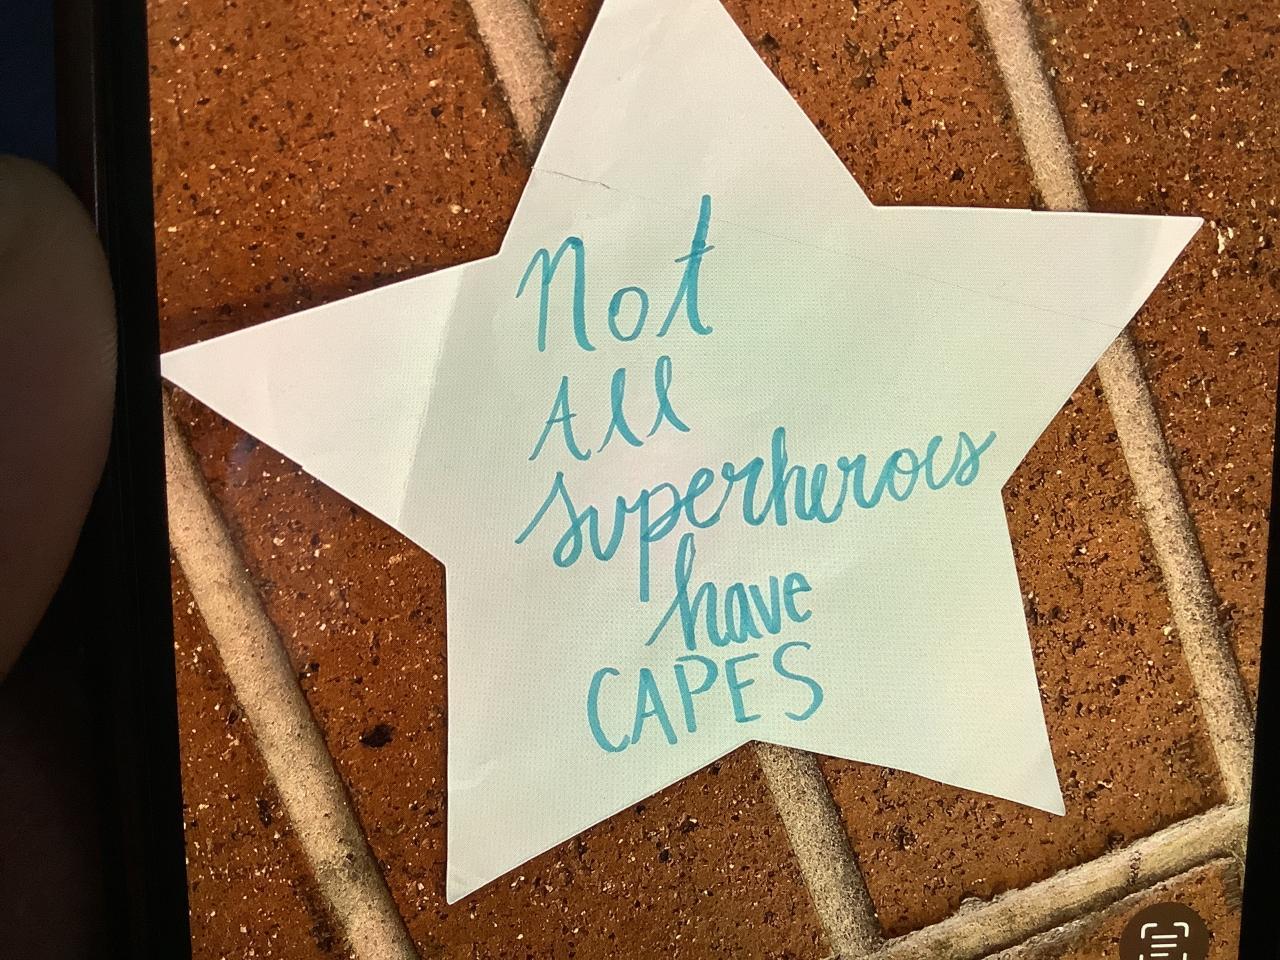 Not
All
superheroes
have
CAPES